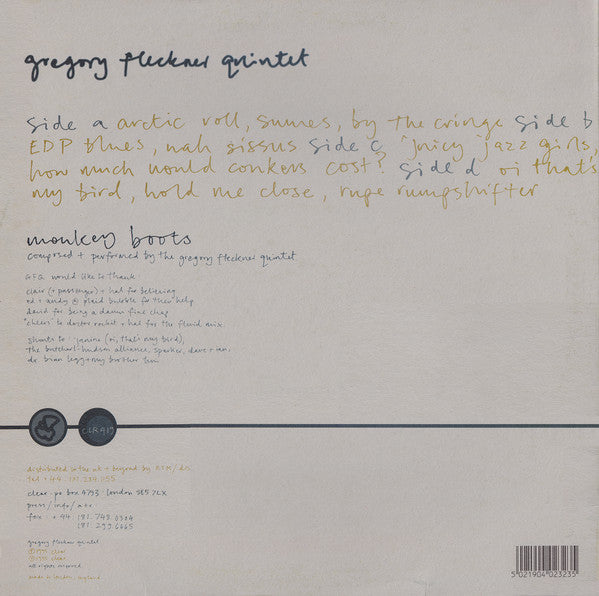 gregory fleckner quintet
side a arctic roll, sumes, by the cringe side b
EDP blues, nah sissus side c juicy jazz girls,
how much would conkers cost? side d oi that's
my bird, hold me close, rupe rumpshifter
monkey boots
composed + performed by the gregory fleckner quintet
GFQ would like to thank:
clair (+ passenger) + hal for believing
ed + andy @ plaid bubble for their help
david for being a damn fine chap
"cheers" to doctor rocket + hal for the fluid mix.
shouts to: janine (oi, that's my bird),
the butcherl-hudson alliance, sparker, dave + ian,
dr. brian legg + my brother tim
CLR419
distributed in the uk + beyond by RTM/disc
tel + 44. 181.284.1155
clear. po box 4793. london SE5 7LX
press/info/
fax + 44 181.748.0384
181.299.6665
gregory fleckner quintet
Ⓟ 1995 clear
© 1995 clear
all rights reserved.
made in london, england
5 021904 023235